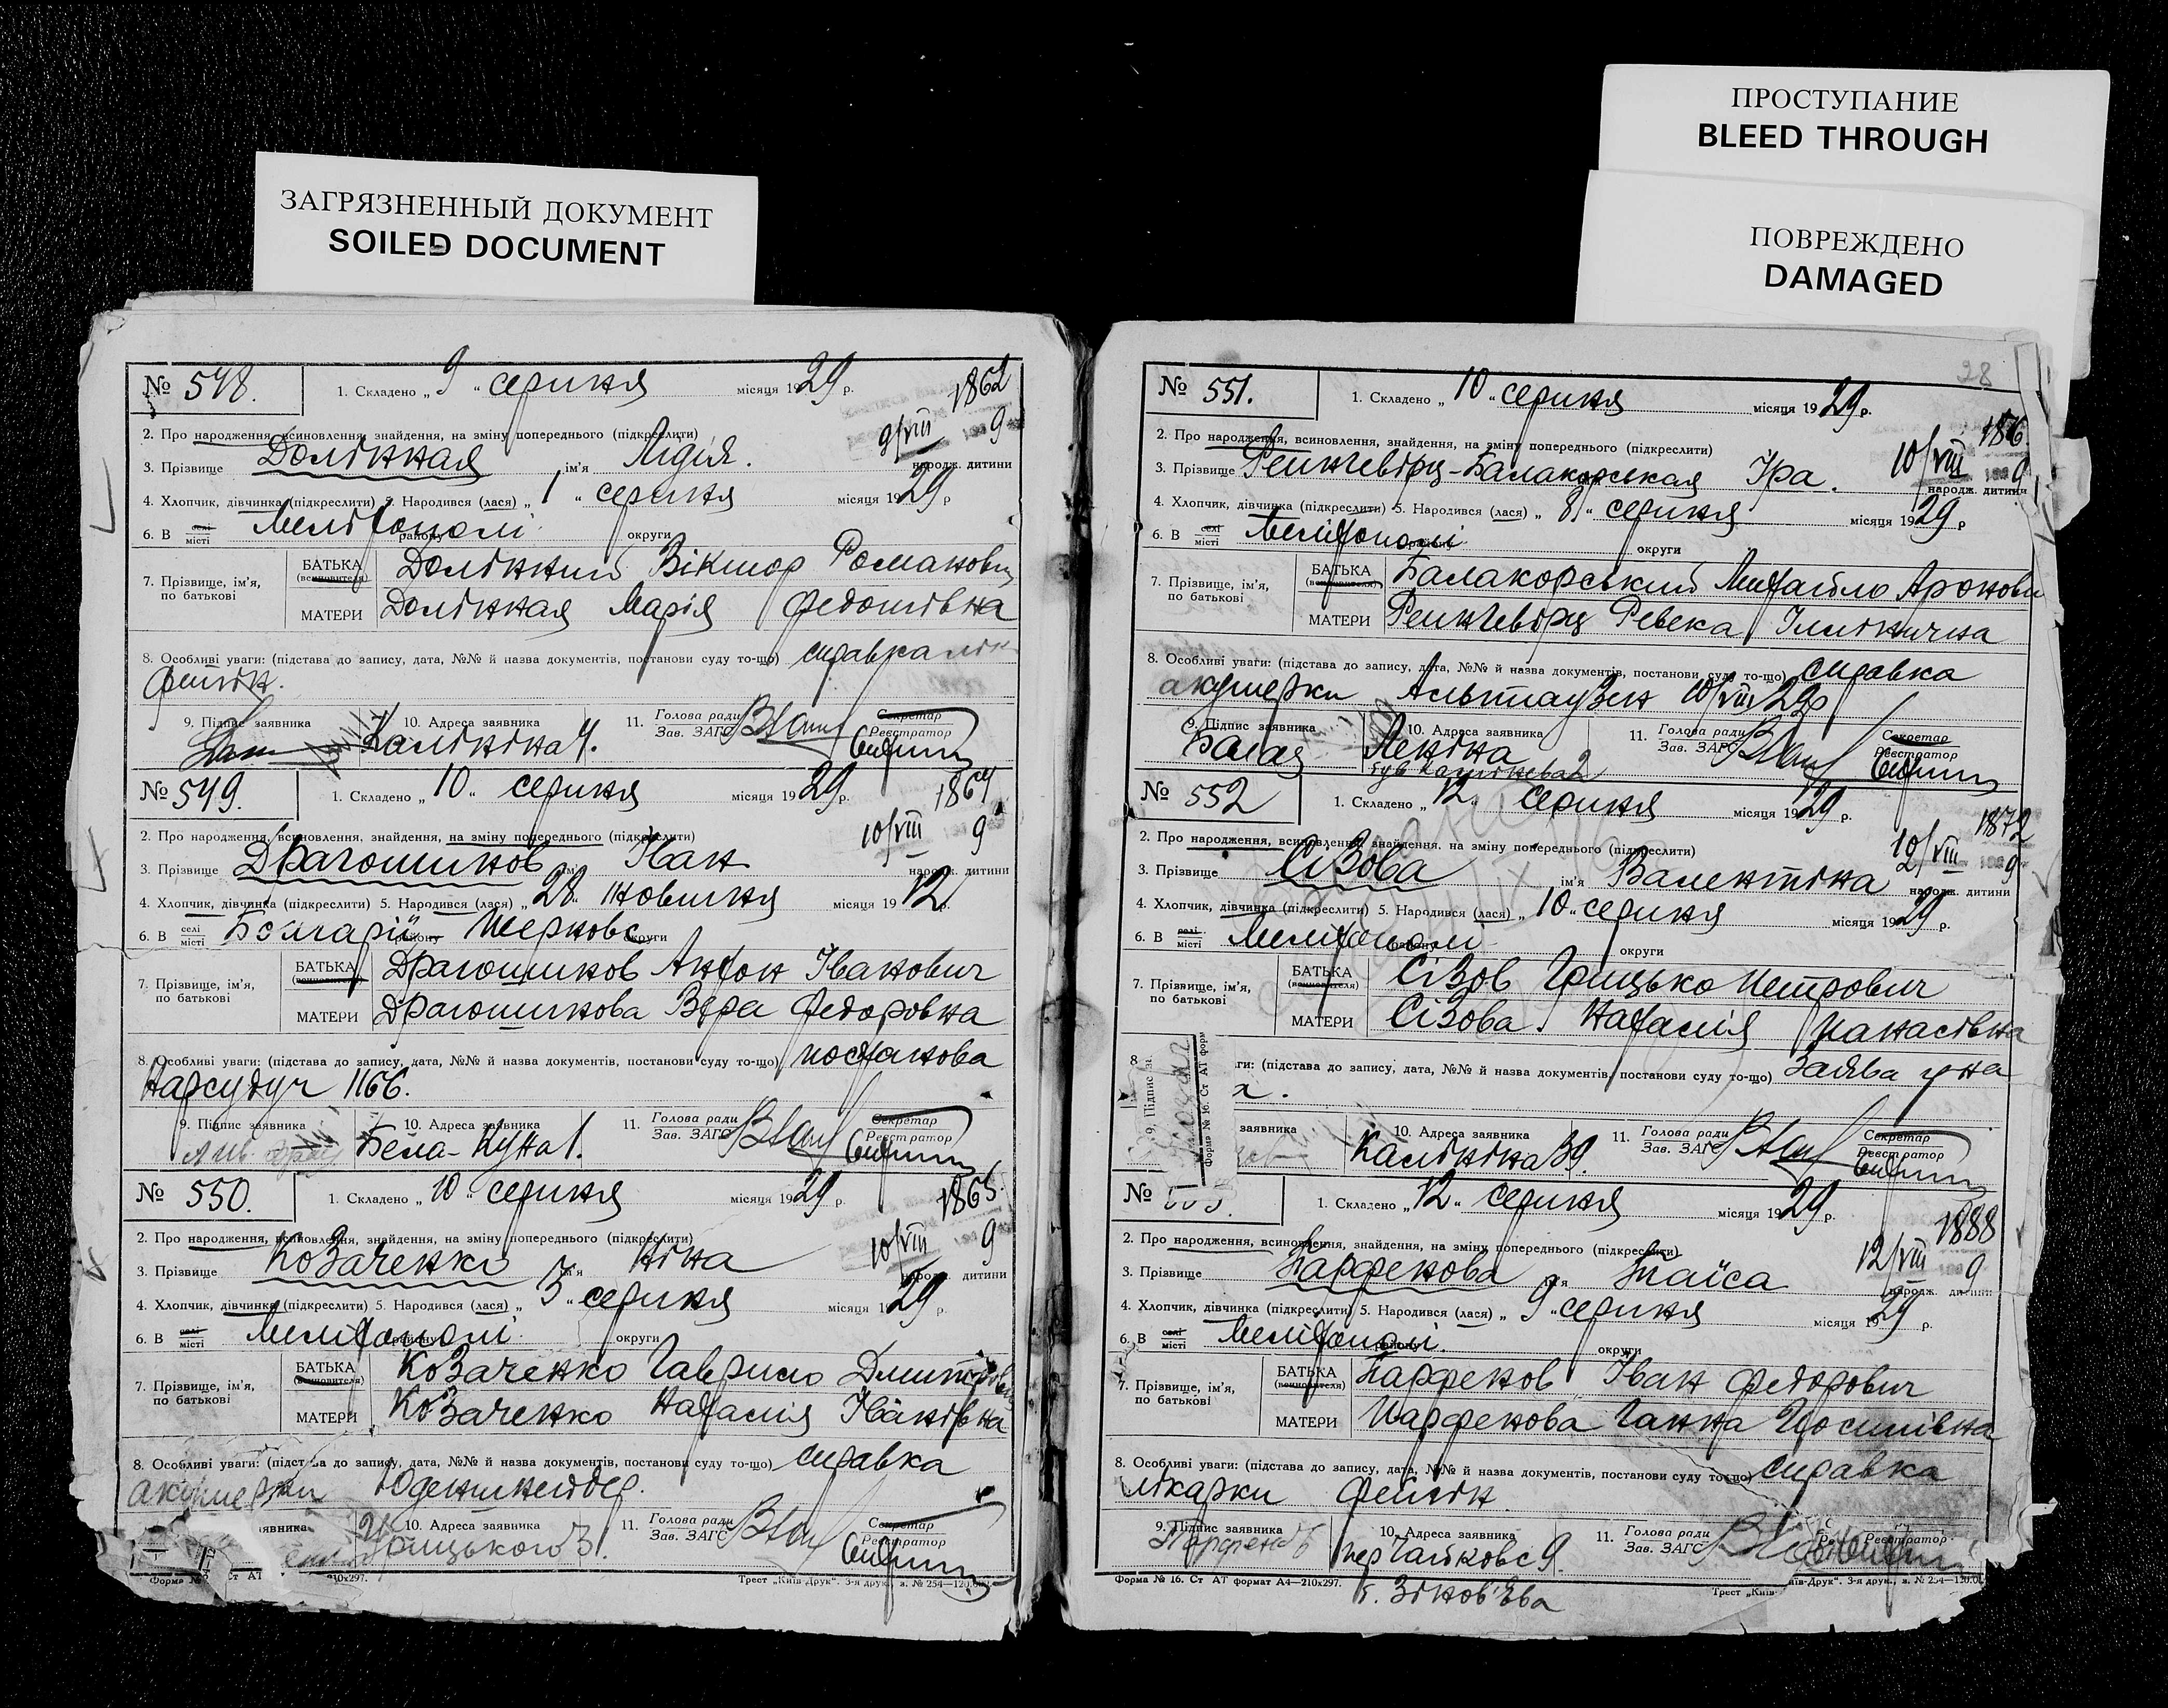 ЗАГРЯЗНЕННЫЙ ДОКУМЕНТ
SOILED DOCUMENT
ПРОСТУПАНИЕ
BLEED THROUGH
ПОВРЕЖДЕНО
DAMAGED
№ 548. 1. Складено „ 9 “ серпня місяця 1929 р. 1862
2. Про народження, всиновлення, знайдення, на зміну попереднього (підкреслити) 9/VIII 9
3. Прізвище Долінная ім'я Лідія. народж. дитини
4. Хлопчик, дівчинка (підкреслити) 5. Народився (лася) „ 1 “ серпня місяця 1929 р
6. В селі місті Мелітополі району округи
7. Прізвище, ім'я, по батькові
БАТЬКА (всиновителя) Долінний Віктор Романович
МАТЕРИ Долінная Марія Федотівна
8. Особливі уваги: (підстава до запису, дата, №№ й назва документів, постанови суду то-що) справка лік
Фейгін.
9. Підпис заявника 10. Адреса заявника Калініна 4. 11. Голова ради Зав. ЗАГС Секретар Реєстратор
№ 549. 1. Складено „ 10 “ серпня місяця 1929 р. 1864
2. Про народження, всиновлення, знайдення, на зміну попереднього (підкреслити) 10/VIII 9
3. Прізвище Драгошинов ім'я Іван народж. дитини
4. Хлопчик, дівчинка (підкреслити) 5. Народився (лася) „ 28 “ місяця 1912 р.
6. В селі місті Болгарії району округи
7. Прізвище, ім'я, по батькові
БАТЬКА (всиновителя) Драгошинов Антон Іванович
МАТЕРИ Драгошинова Вера Федоровна
8. Особливі уваги: (підстава до запису, дата, №№ й назва документів, постанови суду то-що) постанова
Нарсуду 1166.
9. Підпис заявника 10. Адреса заявника Бела-Куна 1. 11. Голова ради Зав. ЗАГС Секретар Реєстратор
№ 550. 1. Складено „ 10 “ серпня місяця 1929 р. 1865.
2. Про народження, всиновлення, знайдення, на зміну попереднього (підкреслити) 10/VIII 9
3. Прізвище Козаченко ім'я Ніна народж. дитини
4. Хлопчик, дівчинка (підкреслити) 5. Народився (лася) „ 3 “ серпня місяця 1929 р.
6. В селі місті Мелітополі району округи
7. Прізвище, ім'я, по батькові
БАТЬКА (всиновителя) Козаченко Гаврило Дмитрович
МАТЕРИ Козаченко Наталія Іванівна
8. Особливі уваги: (підстава до запису, дата, №№ й назва документів, постанови суду то-що) справка
акушерки
заявника 10. Адреса заявника 11. Голова ради Зав. ЗАГС Секретар Реєстратор
Форма № Ст АТ 210х297. Трест „Київ-Друк“. 3-я друк., з. № 254—120.000
28
№ 551. 1. Складено „ 10 “ серпня місяця 1929 р. 186
2. Про народження, всиновлення, знайдення, на зміну попереднього (підкреслити) 10/VIII 9
3. Прізвище Рейнгевірц-Балакорськая Іра. народж. дитини
4. Хлопчик, дівчинка (підкреслити) 5. Народився (лася) „ 8 “ серпня місяця 1929 р
6. В селі місті Мелітополі району округи
7. Прізвище, ім'я, по батькові
БАТЬКА (всиновителя) Балакорський Михайло Аронови
МАТЕРИ Рейнгевірц Ревека Іллінична
8. Особливі уваги: (підстава до запису, дата, №№ й назва документів, постанови суду то-що) справка
акушерки Альтаузен 10/VIII 29р
9. Підпис заявника 10. Адреса заявника Леніна 11. Голова ради Зав. ЗАГС Секретар Реєстратор
№ 552 1. Складено „ 12 “ серпня місяця 1929 р. 1872
2. Про народження, всиновлення, знайдення, на зміну попереднього (підкреслити) 12/VIII 9
3. Прізвище Сізова ім'я Валентіна народж. дитини
4. Хлопчик, дівчинка (підкреслити) 5. Народився (лася) „ 10 “ серпня місяця 1929 р.
6. В селі місті Мелітополі району округи
7. Прізвище, ім'я, по батькові
БАТЬКА (всиновителя) Сізов Грицько Петрович
МАТЕРИ Сізова Наталія Панасівна
8 ги: (підстава до запису, дата, №№ й назва документів, постанови суду то-що) Заява
9. Підпис за
Форма № 16. Ст АТ форм
заявника 10. Адреса заявника Калініна 39. 11. Голова ради Зав. ЗАГС Секретар Реєстратор
№ 1. Складено „ 12 “ серпня місяця 1929 р. 1888
2. Про народження, всиновлення, знайдення, на зміну попереднього (підкреслити) 12/VIII 9
3. Прізвище Парфенова ім'я Таїса народж. дитини
4. Хлопчик, дівчинка (підкреслити) 5. Народився (лася) „ 9 “ серпня місяця 1929 р.
6. В селі місті Мелітополі. району округи
7. Прізвище, ім'я, по батькові
БАТЬКА (всиновителя) Парфенов Іван Федорович
МАТЕРИ Парфенова Ганна Йосипівна
8. Особливі уваги: (підстава до запису, дата, №№ й назва документів, постанови суду то-що) справка
лікарки Фейгін
9. Підпис заявника 10. Адреса заявника пер Чайковс 9. 11. Голова ради Зав. ЗАГС Реєстратор
Форма № 16. Ст АТ формат А4—210х297. Трест „Київ-Друк“. 3-я друк., з. № 254—120.0
б. Зіновʼєва